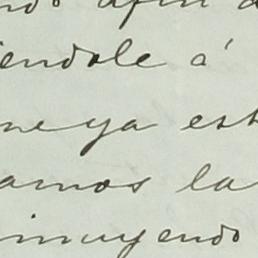 ndo afin d
iendole á
ne ya est
amos la
inuyendo